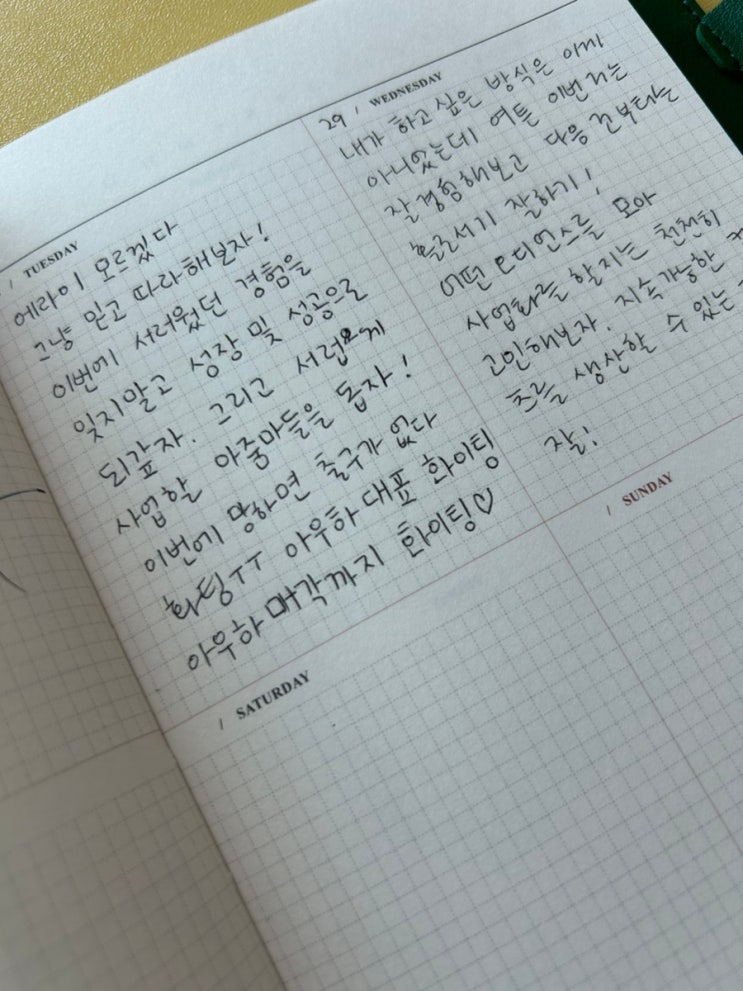 / TUESDAY
에라이 모르겠다
그냥 믿고 따라해보자!
이번에 서러웠던 경험을
잊지말고 성장 및 성공으로
되갚자. 그리고 서럽게
사업할 아줌마들을 돕자!
이번에 망하면 출구가 없다
화팅ㅜㅜ 아우하 대표 화이팅
아우하 매각까지 화이팅♡
29 / WEDNESDAY
내가 하고싶은 방식은
아니었는데 여튼 이번거는
잘 경험해보고 다음 건부터는
홀로서기 잘하기!
어떤 오디언스를 모아
사업화를 할지는 천천히
고민해보자. 지속가능한
생산할 수 있는
잘!
/ SATURDAY
/ SUNDAY